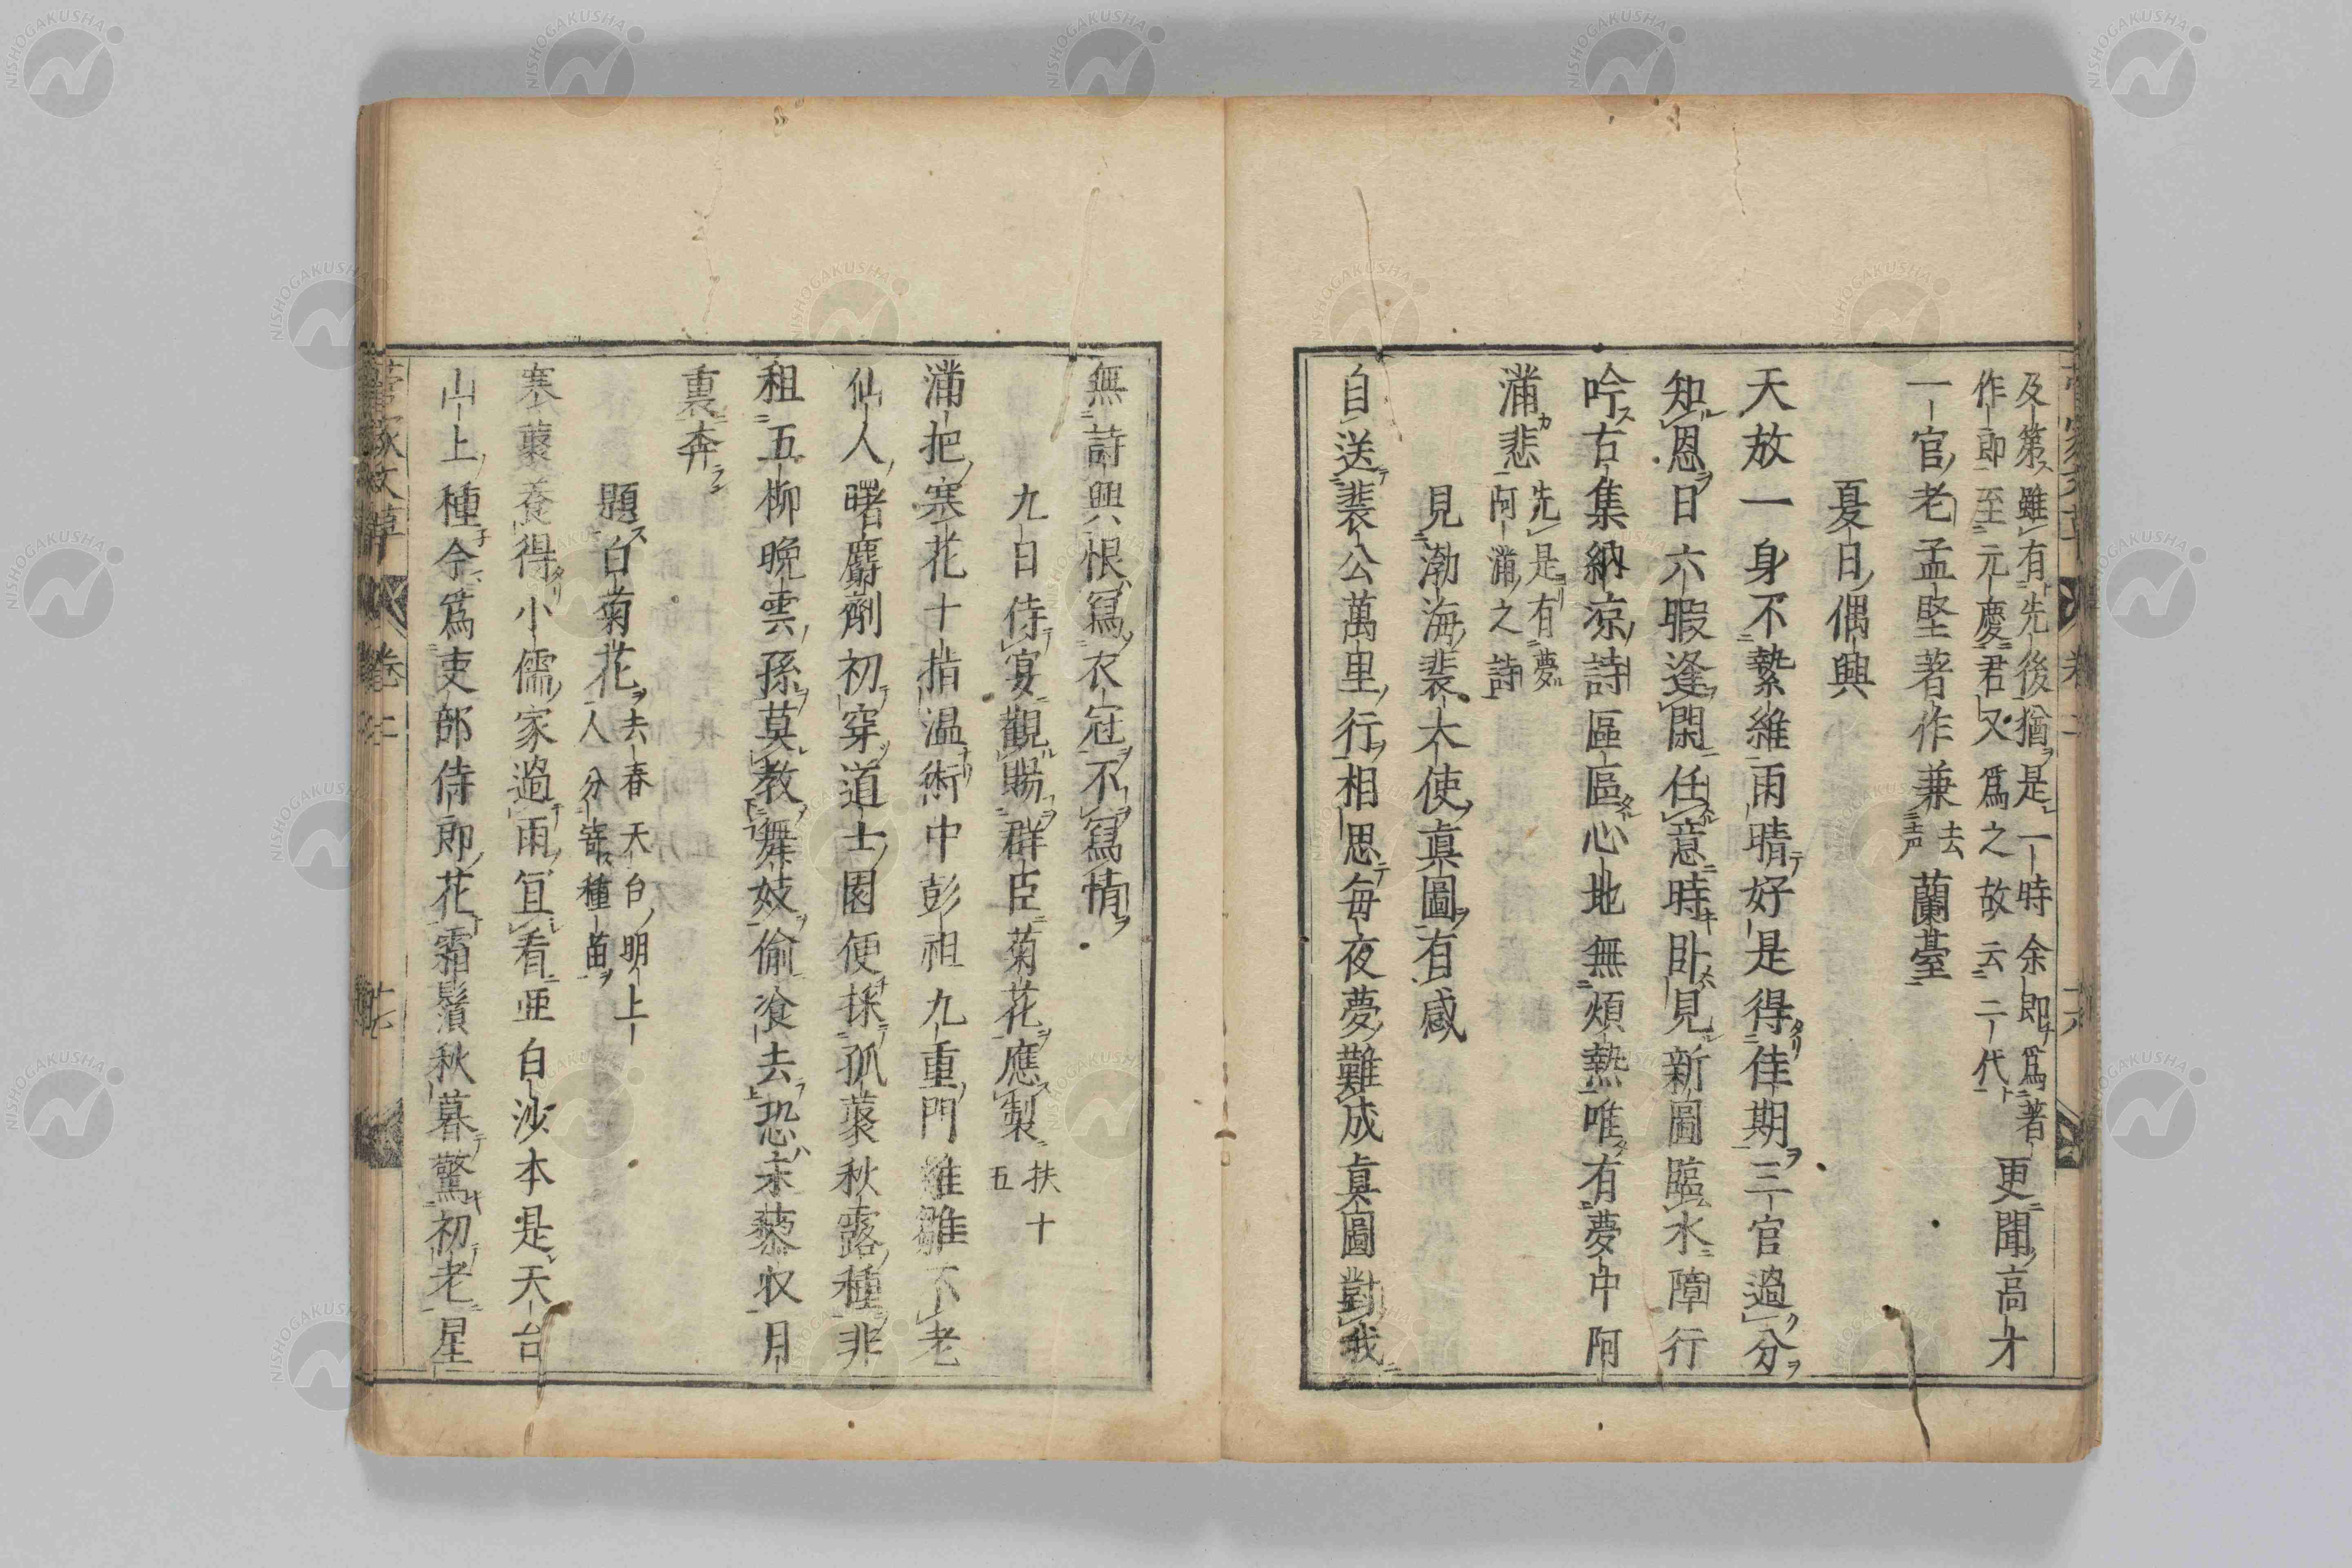 及第雖有先後猶是一時余即爲著
作即至元慶君又爲之故云二代
更聞高才
一官老孟堅著作兼
去
声
蘭臺
夏日偶興
天放一身不縶維雨晴好是得佳期三官過分
知恩日六暇逢閑任意時臥見新圖臨水障行
吟古集納凉詩區區心地無煩熱唯有夢中阿
滿悲
先是有夢
阿滿之詩
見渤海裴大使真圖有感
自送裴公萬里行相思每夜夢難成真圖對我
無詩興恨寫衣冠不寫情
九日侍宴觀賜群臣菊花應製
扶十
五
滿把寒花十指温術中彭祖九重門雖雖不老
仙人曙麝劑初穿道士園便採孤藂秋露種非
租五柳晩雲孫莫教舞妓偷飡去恐未藜收月
裏奔
題白菊花
去春天台明上
人分寄種苗
寒藂養得小儒家過雨冝看亜白沙本是天台
山上種今爲吏部侍郎花霜鬚秋暮驚初老星
菅家文草
卷二
十七